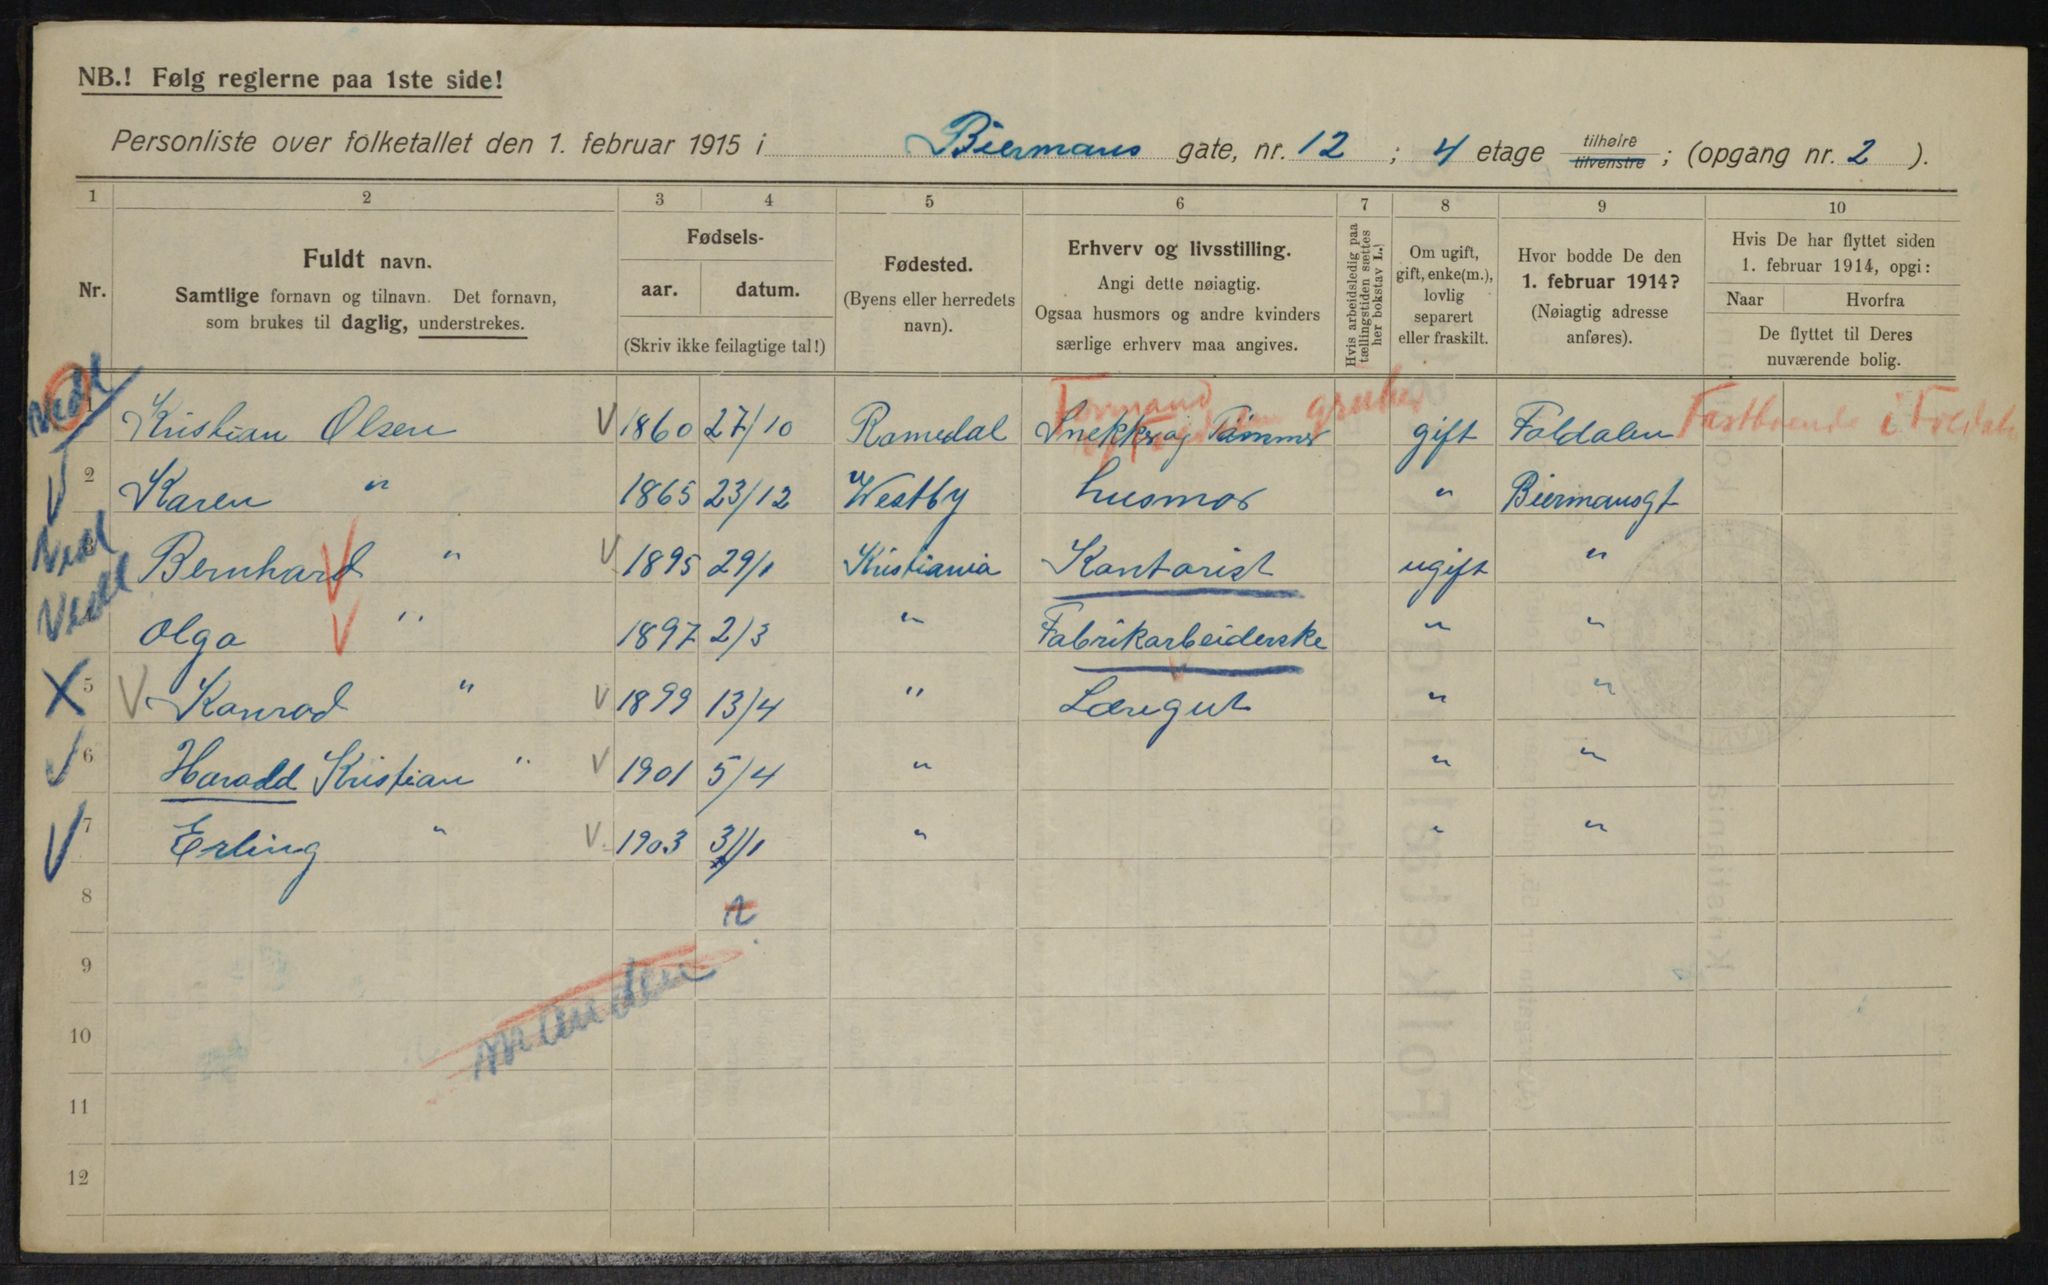 NB.! Følg reglerne paa 1ste side!
Personliste over folketallet den 1. februar 1915 i Biermans gate, nr. 12 ; 4 etage tilhøire tilvenstre ; (opgang nr. 2 ).
1 2 3 4 5 6 7 8 9 10
Nr.
Fuldt navn.
Samtlige fornavn og tilnavn. Det fornavn,
som brukes til daglig, understrekes.
Fødsels-
aar. datum.
(Skriv ikke feilagtige tal!)
Fødested.
(Byens eller herredets
navn).
Erhverv og livsstilling.
Angi dette nøiagtig.
Ogsaa husmors og andre kvinders
særlige erhverv maa angives.
Hvis arbeidsledig paa
tællingstiden sættes
her bokstav L.)
Om ugift,
gift, enke(m.),
lovlig
separert
eller fraskilt.
Hvor bodde De den
1. februar 1914?
(Nøiagtig adresse
anføres).
Hvis De har flyttet siden
1. februar 1914, opgi:
Naar Hvorfra
De flyttet til Deres
nuværende bolig.
Formand gruber
1 Kristian Olsen V 1860 27/10 Romedal Snekker og Tømmer gift Foldalen Fastboende i Foldalen
2 Karen " 1865 23/12 Westby husmor " Biermansgt
3 Bernhard " V 1895 29/1 Kristiania Kontorist ugift "
Olga " 1897 2/3 " Fabrikarbeiderske " "
5 V Konrad " V 1899 13/4 " Læregut " "
6 Harald Kristian " V 1901 5/4 " " "
7 Erling " V 1903 3/1 " " "
8
9
manden
10
11
12